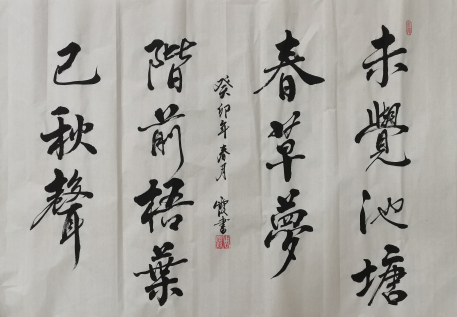 未覺池塘
春草夢
階前梧葉
已秋聲
癸卯年春月 霞書